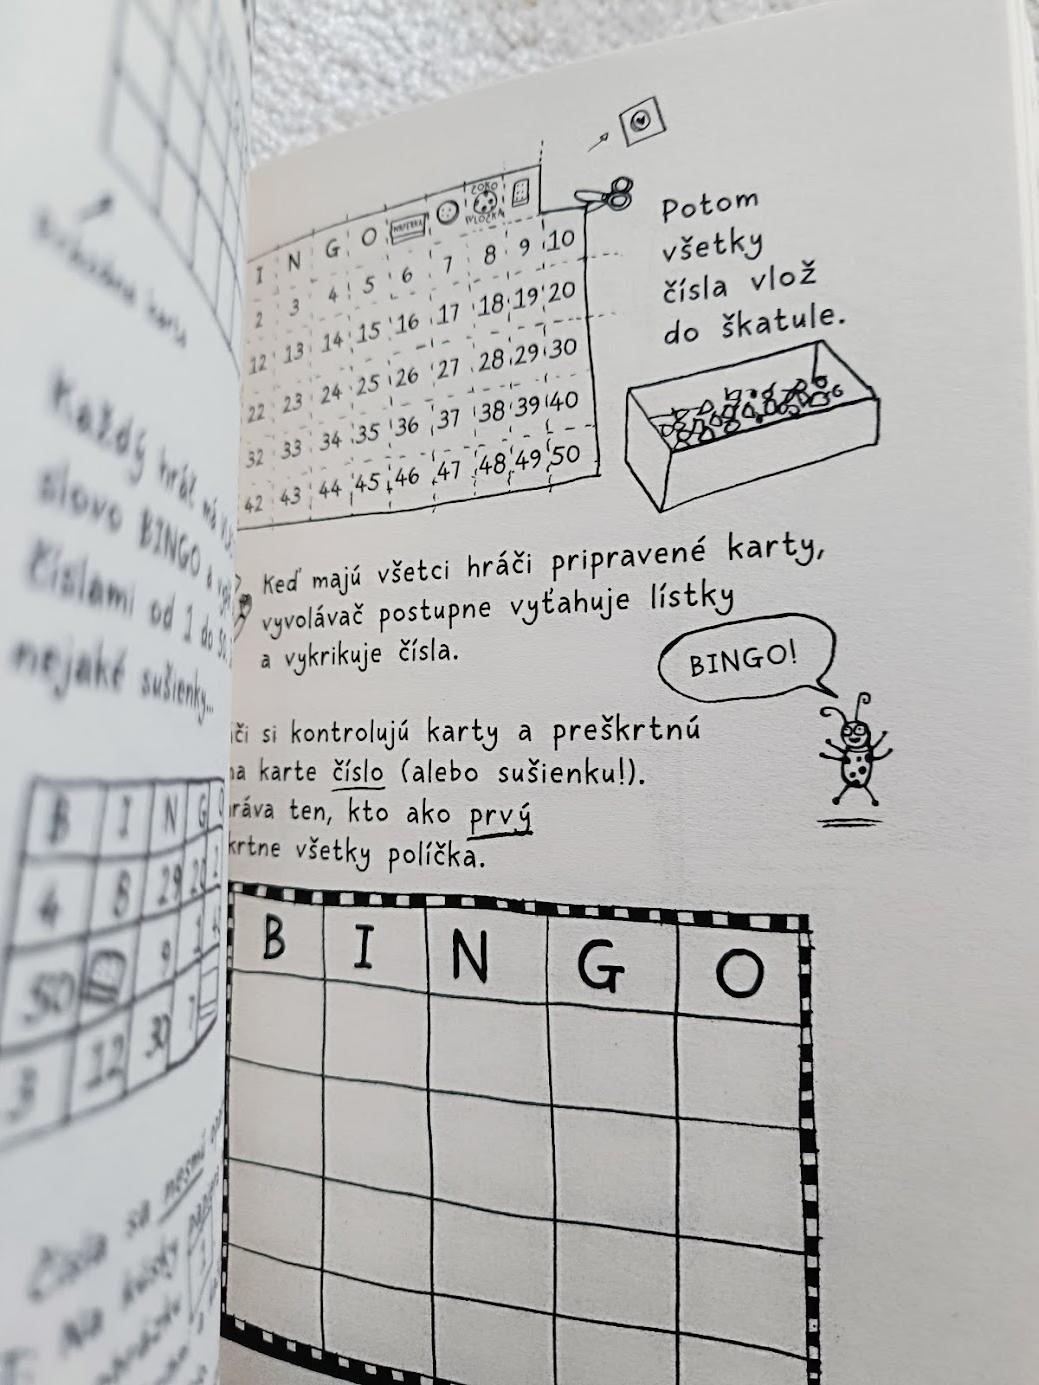 Každý hráč má
slovo BINGO a
číslami od 1 do 50
nejaké sušienky...
B I N G O
4 8 29 20
50 9
3 12 30
Čísla sa nesmú
Na kúsky
I N G O ČOKO VLOČKA
2 3 4 5 6 7 8 9 10
12 13 14 15 16 17 18 19 20
22 23 24 25 26 27 28 29 30
32 33 34 35 36 37 38 39 40
42 43 44 45 46 47 48 49 50
Potom
všetky
čísla vlož
do škatule.
Keď majú všetci hráči pripravené karty,
vyvolávač postupne vyťahuje lístky
a vykrikuje čísla.
BINGO!
či si kontrolujú karty a preškrtnú
na karte číslo (alebo sušienku!).
ráva ten, kto ako prvý
krtne všetky políčka.
B I N G O